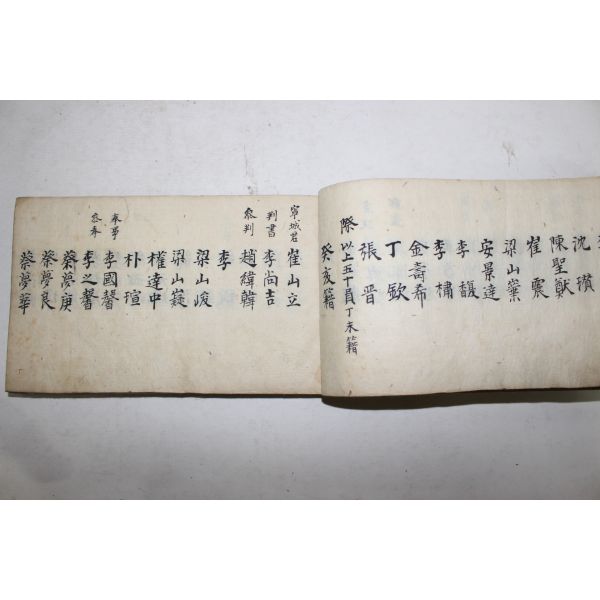 沈瓚
陳聖猷
崔震
梁山藁
安景達
李馥
李橚
金壽希
丁欽
張晋
際 以上五十員丁未籍
癸亥籍
寧城君 崔山立
判書 李尚吉
參判 趙緯韓
李
梁山峻
梁山嶷
權達中
朴瑄
奉事 李國馨
參奉 李之馨
蔡夢庚
蔡夢良
蔡夢華